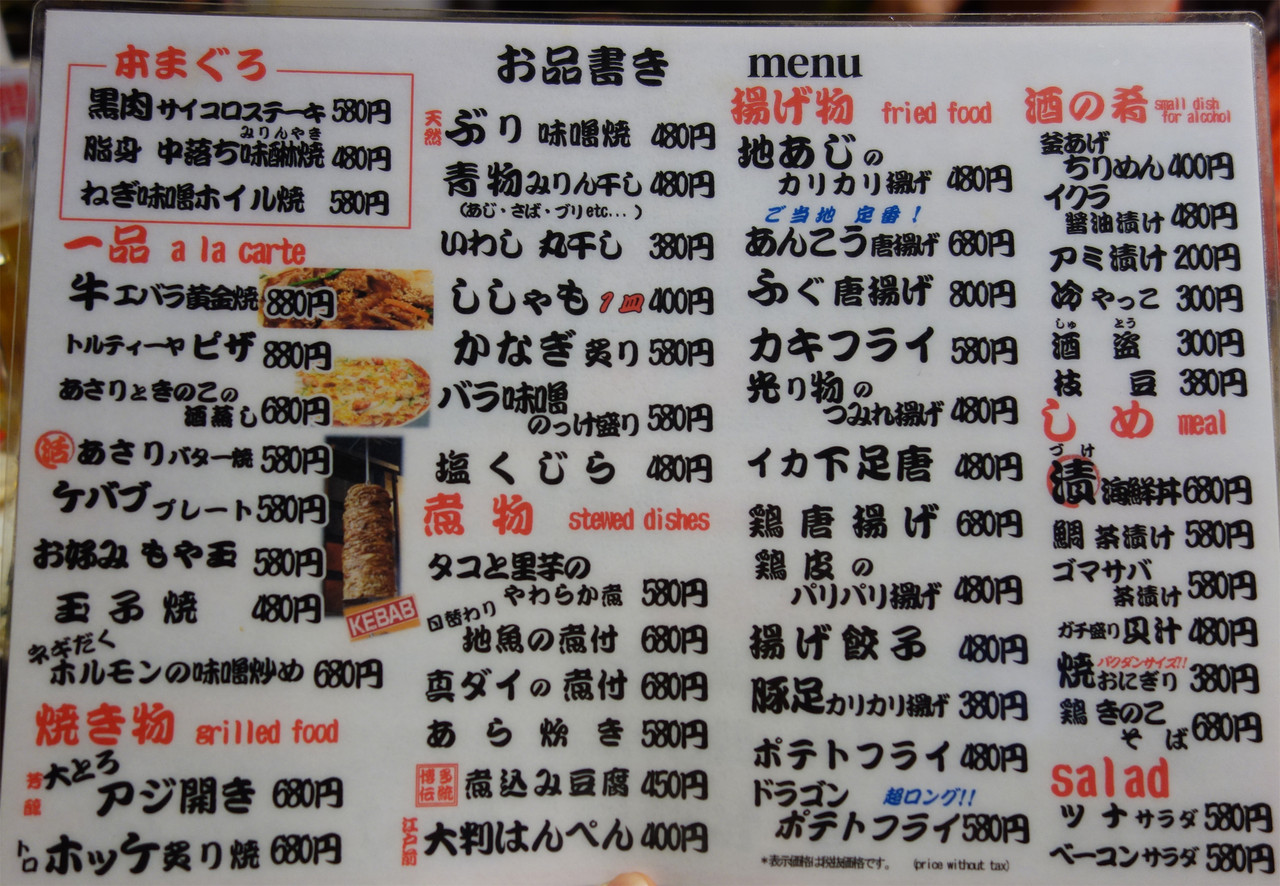 お品書き menu
本まぐろ
黒肉 サイコロステーキ 580円
みりんやき
脂身 中落ち味醂焼 480円
ねぎ味噌ホイル焼 580円
一品 a la carte
牛 エバラ黄金焼 880円
トルティーヤ ピザ 880円
あさりときのこの
酒蒸し 680円
活 あさりバター焼 580円
ケバブプレート 580円
お好み もや玉 580円
玉子焼 480円
KEBAB
ネギだく
ホルモンの味噌炒め 680円
焼き物 grilled food
芳醇 大とろ
アジ開き 680円
トロ ホッケ炙り焼 680円
天然 ぶり 味噌焼 480円
青物みりん干し 480円
(あじ・さば・ブリetc...)
いわし 丸干し 380円
ししゃも 1皿 400円
かなぎ 炙り 580円
バラ味噌
のっけ盛り 580円
塩くじら 480円
煮物 stewed dishes
タコと里芋の
やわらか煮 580円
日替わり
地魚の煮付 680円
真ダイの煮付 680円
あら炊き 580円
博多伝統 煮込み豆腐 450円
江戸前 大判はんぺん 400円
揚げ物 fried food
地あじの
カリカリ揚げ 480円
ご当地 定番!
あんこう唐揚げ 680円
ふぐ唐揚げ 800円
カキフライ 580円
光り物の
つみれ揚げ 480円
イカ下足唐 480円
鶏唐揚げ 680円
鶏皮の
パリパリ揚げ 480円
揚げ餃子 480円
豚足カリカリ揚げ 380円
ポテトフライ 480円
ドラゴン 超ロング!!
ポテトフライ 580円
*表示価格は税抜価格です。 (price without tax)
酒の肴 small dish for alcohol
釜あげ
ちりめん 400円
イクラ
醤油漬け 480円
アミ漬け 200円
冷やっこ 300円
しゅ とう
酒盗 300円
枝豆 380円
しめ meal
づけ
漬 海鮮丼 680円
鯛 茶漬け 580円
ゴマサバ
茶漬け 580円
ガチ盛り 貝汁 480円
バクダンサイズ!!
焼おにぎり 380円
鶏 きのこ
そば 680円
salad
ツナサラダ 580円
ベーコンサラダ 580円